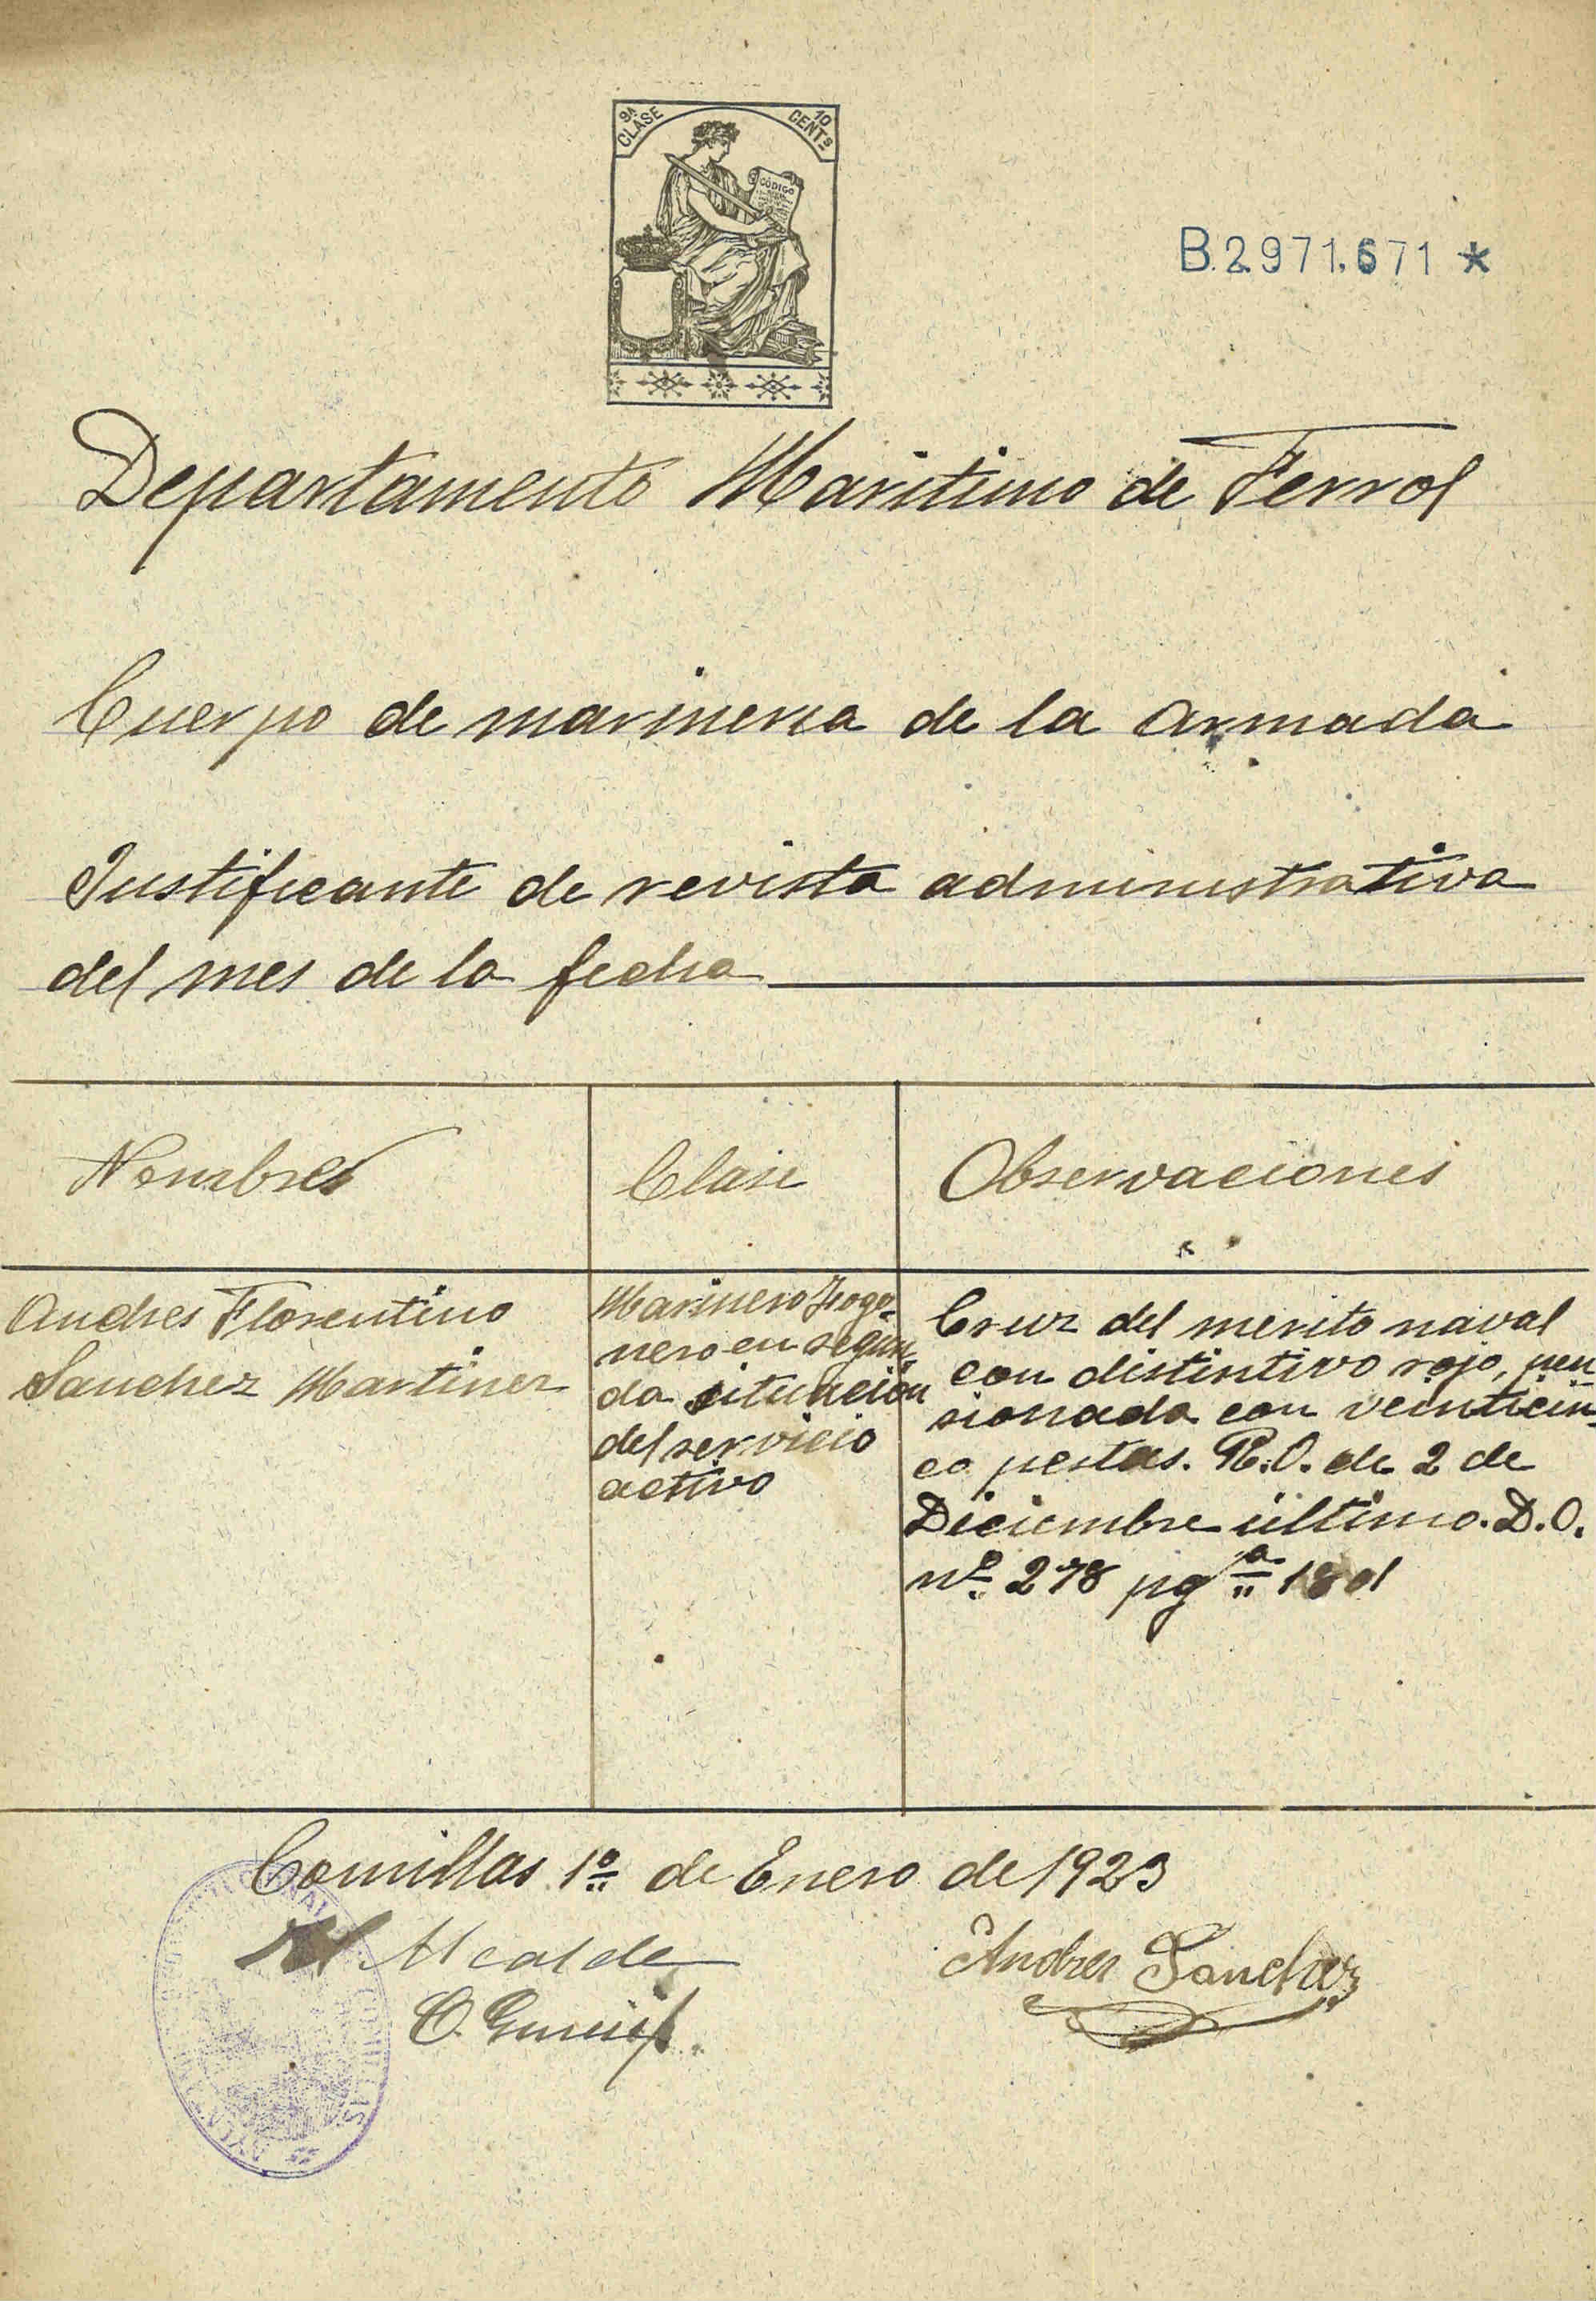 9ª CLASE
10 CENTS
CÓDIGO
B.2.971.671 *
Departamento Maritimo de Ferrol
Cuerpo de marineria de la armada
Justificante de revista administrativa
del mes de la fecha
Nombres
Clase
Observaciones
Andres Florentino
Sanchez Martinez
Marinero Fogo-
nero en segun
da situación
del servicio
activo
Cruz del merito naval
con distintivo rojo, pen
sionada con veinticin-
co pestas. R.O. de 2 de
Diciembre último. D.O.
nº 278 pgª 1801
Comillas 1º de Enero de 1923
El Alcalde
Andres Sanchez